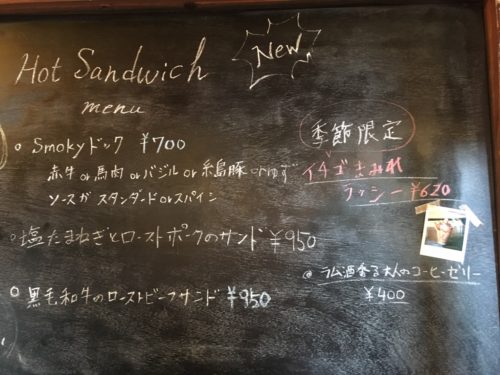 Hot Sandwich
menu
New
Smokyドック ¥700
赤牛 or 馬肉 or バジル or 糸島豚 or ゆず
ソースが スタンダード or スパイシ
塩たまねぎとローストポークのサンド ¥950
黒毛和牛のローストビーフサンド ¥950
季節限定
イチゴきみれ
ラッシー ¥620
ラム酒香る大人のコーヒーゼリー
¥400